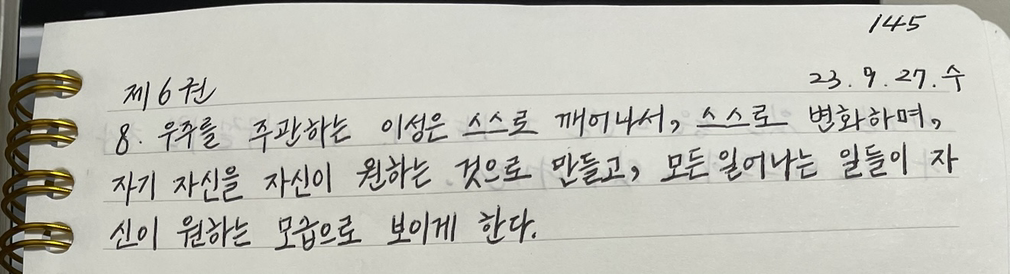 145
제6권 23.9.27.수
8. 우주를 주관하는 이성은 스스로 깨어나서, 스스로 변화하며,
자기 자신을 자신이 원하는 것으로 만들고, 모든 일어나는 일들이 자
신이 원하는 모습으로 보이게 한다.